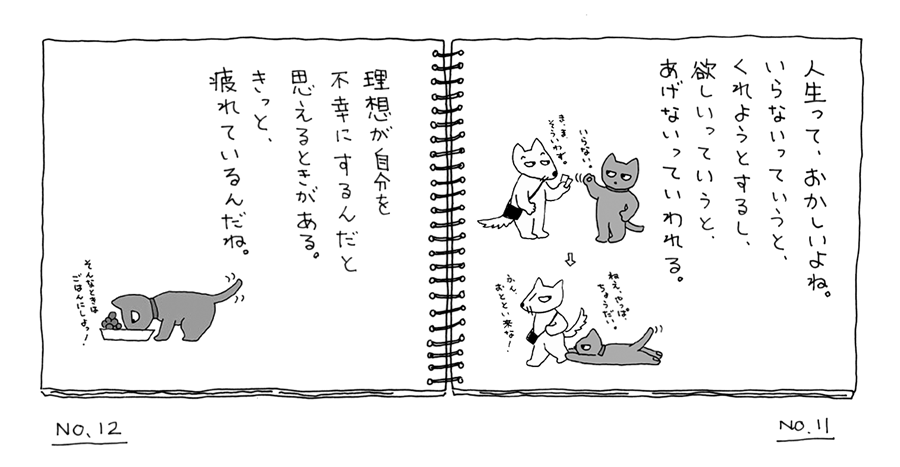 人生って、おかしいよね。
いらないっていうと、
くれようとするし、
欲しいっていうと、
あげないっていわれる。
いらない。
ま、ま、
そういわず。
ねえ、やっぱ
ちょうだい。
ふん、
おととい来な!
NO.11
理想が自分を
不幸にするんだと
思えるときがある。
きっと、
疲れているんだね。
そんなときは
ごはんにしよっ!
NO.12